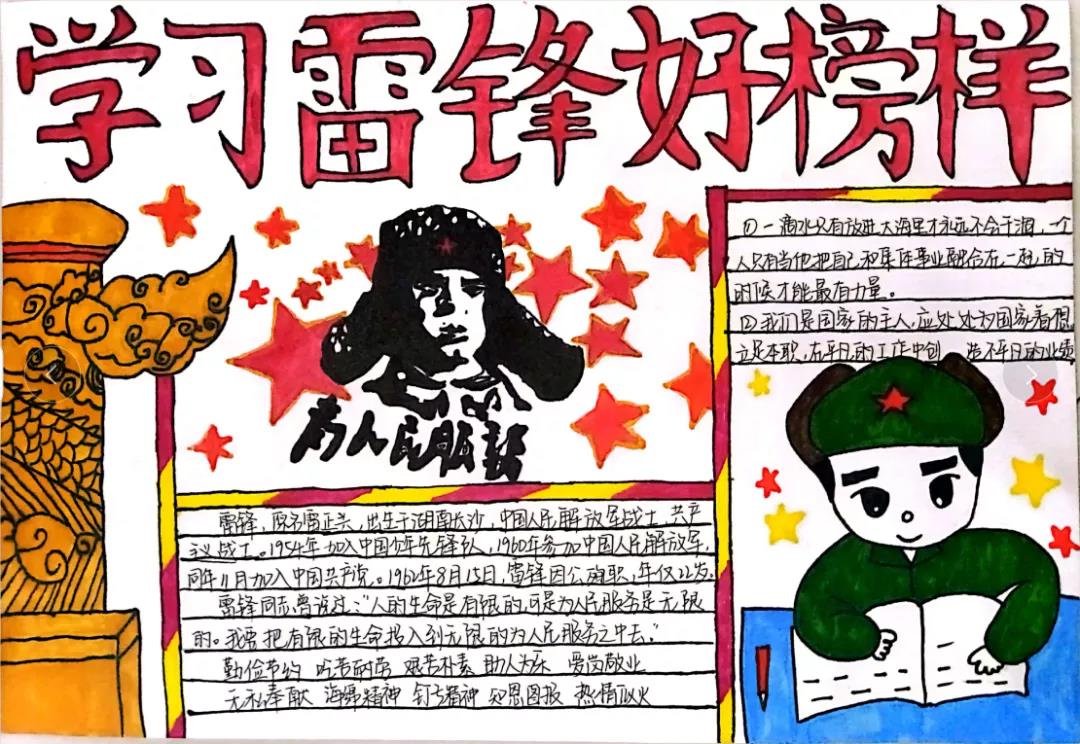 学习雷锋好榜样
①一滴水只有放进大海里才永远不会干涸,一个
人只有当他把自己和集体事业融合在一起的
时候才能最有力量。
②我们是国家的主人,应处处为国家着想
立足本职,在平凡的工作中创 造不平凡的业绩
为人民服务
雷锋,原名雷正兴,出生于湖南长沙,中国人民解放军战士,共产
主义战士。1954年加入中国少年先锋队,1960年参加中国人民解放军,
同年11月加入中国共产党。1962年8月15日,雷锋因公殉职,年仅22岁。
雷锋同志曾说过:“人的生命是有限的,可是为人民服务是无限
的。我要把有限的生命投入到无限的为人民服务之中去。”
勤俭节约 吃苦耐劳 艰苦朴素 助人为乐 爱岗敬业
无私奉献 海绵精神 钉子精神 知恩图报 热情似火